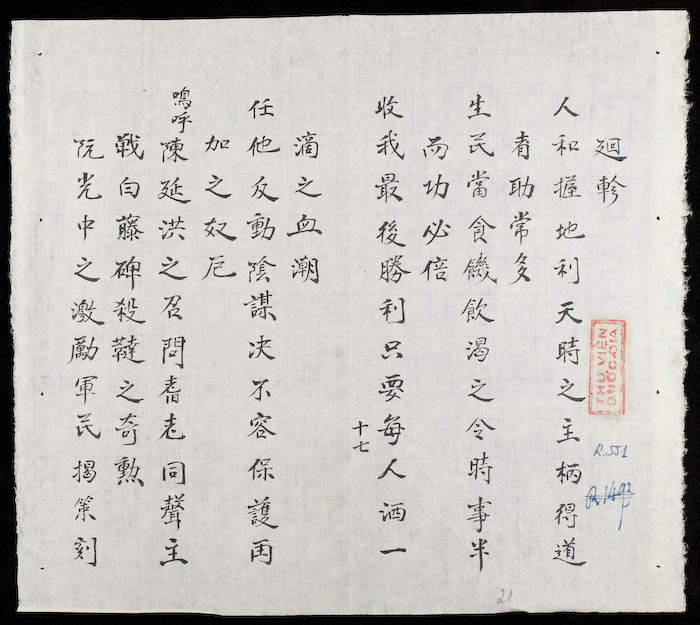 廻軫
人和握地利天時之主柄得道
者助常多
生民當食饑飲渴之令時事半
而功必倍
十七
收我最後勝利只要每人洒一
滴之血潮
任他反動陰謀决不容保護再
加之奴厄
嗚呼陳延洪之召問耆老同聲主
戰白藤碑殺韃之奇勲
阮光中之激勵軍民揭策刻
THƯ VIỆN
QUỐC-GIA
R.551
R.1493
21